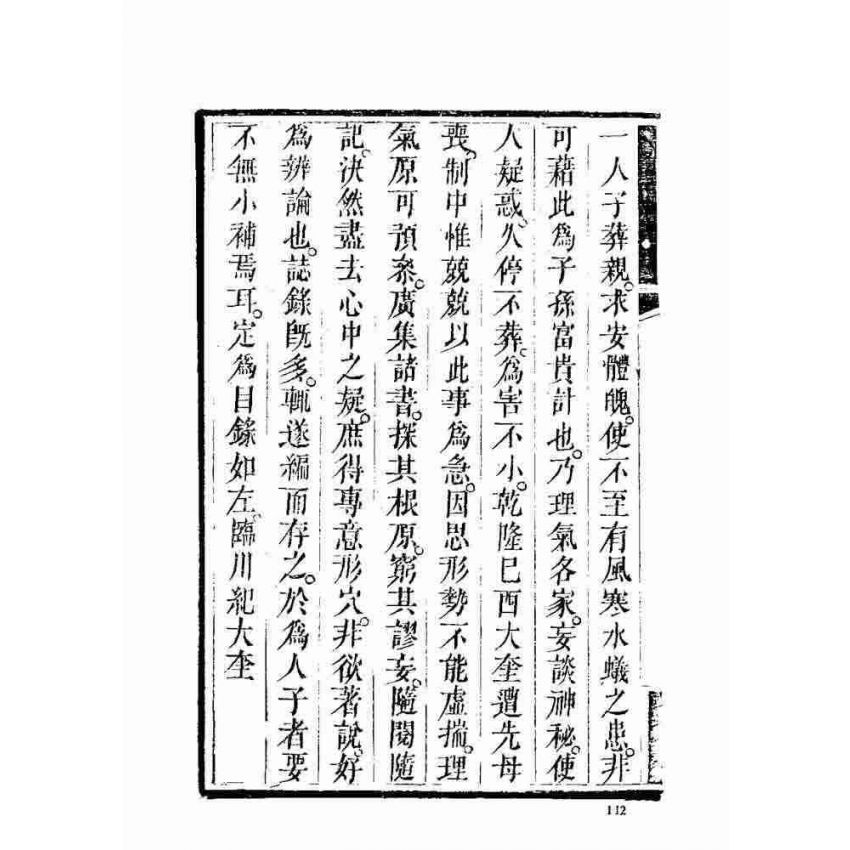 一人子葬親。求安體魄。使不至有風寒水蟻之患。非
可藉此爲子孫富貴計也。乃理氣各家。妄談神秘。使
人疑惑。久停不葬。爲害不小。乾隆巳酉大奎遭先母
喪。制中惟兢兢以此事爲急。因思形勢不能虛揣。理
氣原可預衆。廣集諸書。探其根原。窮其謬妄。隨閱隨
記。決然盡去心中之疑。庶得專意形穴。非欲著說。好
爲辨論也。誌錄旣多。輒遂編而存之。於爲人子者要
不無小補焉耳。定爲目錄如左。臨川紀大奎
112